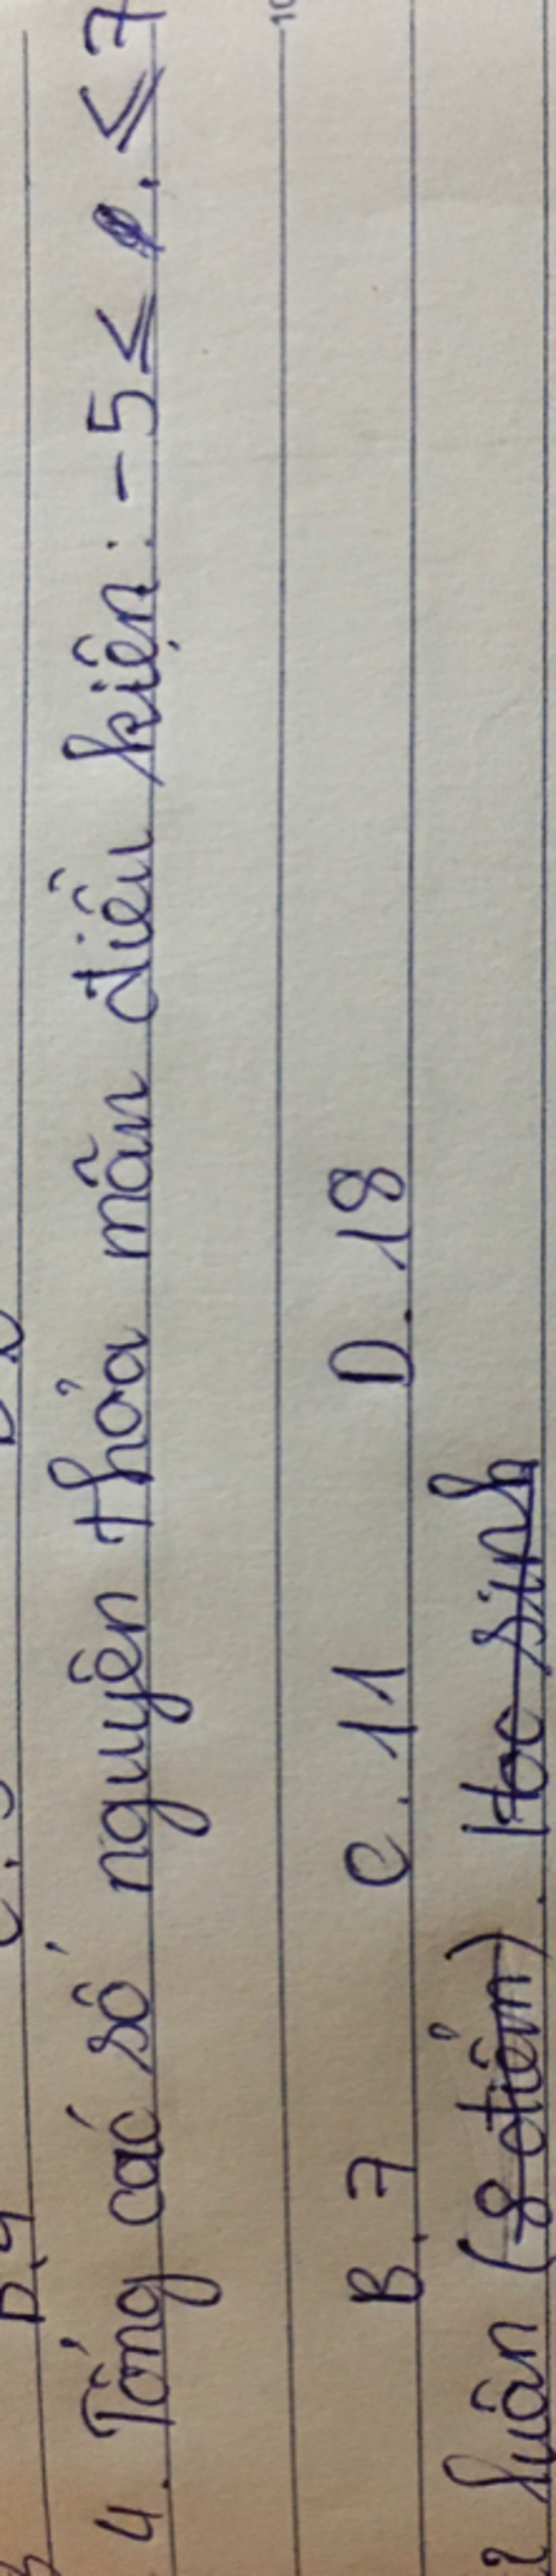 4. Tổng các số nguyên thỏa mãn điều kiện: -5 ≤ . ≤ 7
B. 7 C. 11 D. 18
luận (8 điểm). Học sinh